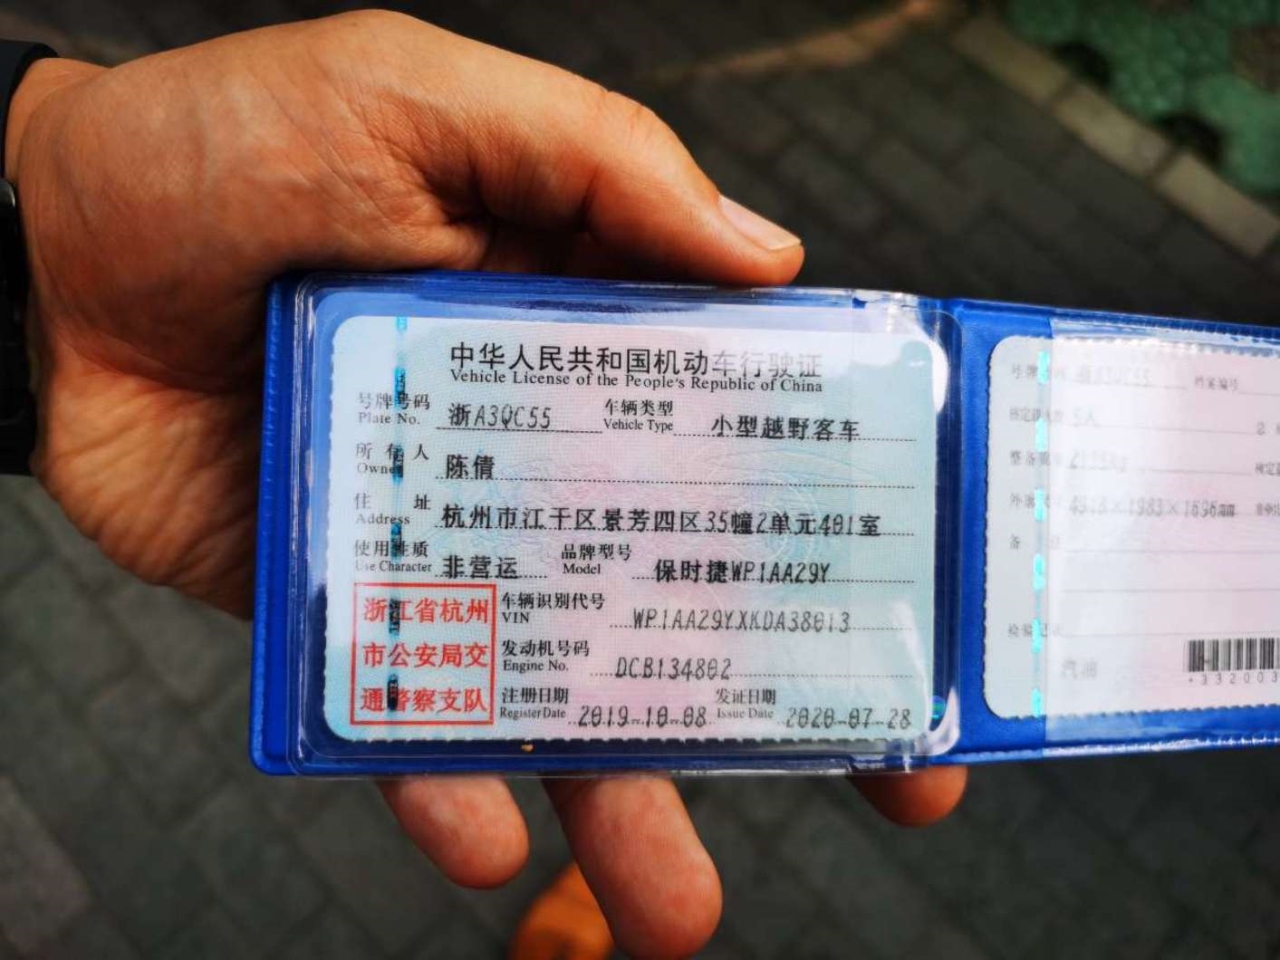 中华人民共和国机动车行驶证
Vehicle License of the People's Republic of China
号牌号码 浙A3QC55 车辆类型 小型越野客车
Plate No. Vehicle Type
所有人 陈倩
Owner
住址 杭州市江干区景芳四区35幢2单元401室
Address
使用性质 非营运 品牌型号 保时捷WP1AA29Y
Use Character Model
浙江省杭州
市公安局交
通警察支队
车辆识别代号 WP1AA29YXKDA38013
VIN
发动机号码 DCB134802
Engine No.
注册日期 2019-10-08 发证日期 2020-07-28
Register Date Issue Date
号牌号码 浙A3QC55 档案编号
5人
外廓尺寸 4918×1983×1696mm
备注
检验记录
汽油